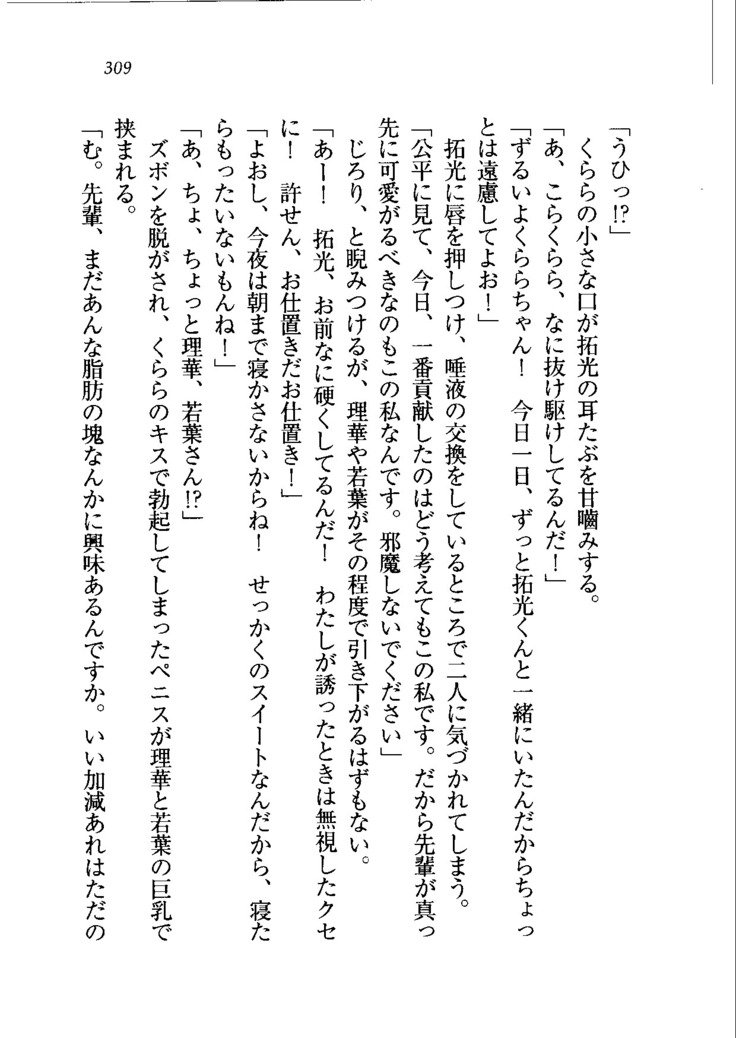 309
「うひっ!?」
くららの小さな口が拓光の耳たぶを甘嚙みする。
「あ、こらくらら、なに抜け駆けしてるんだ！」
「ずるいよくららちゃん！　今日一日、ずっと拓光くんと一緒にいたんだからちょっ
とは遠慮してよお！」
拓光に唇を押しつけ、唾液の交換をしているところで二人に気づかれてしまう。
「公平に見て、今日、一番貢献したのはどう考えてもこの私です。だから先輩が真っ
先に可愛がるべきなのもこの私なんです。邪魔しないでください」
じろり、と睨みつけるが、理華や若葉がその程度で引き下がるはずもない。
「あー！　拓光、お前なに硬くしてるんだ！　わたしが誘ったときは無視したクセ
に！　許せん、お仕置きだお仕置き！」
「よおし、今夜は朝まで寝かさないからね！　せっかくのスイートなんだから、寝た
らもったいないもんね！」
「あ、ちょ、ちょっと理華、若葉さん!?」
ズボンを脱がされ、くららのキスで勃起してしまったペニスが理華と若葉の巨乳で
挟まれる。
「む。先輩、まだあんな脂肪の塊なんかに興味あるんですか。いい加減あれはただの